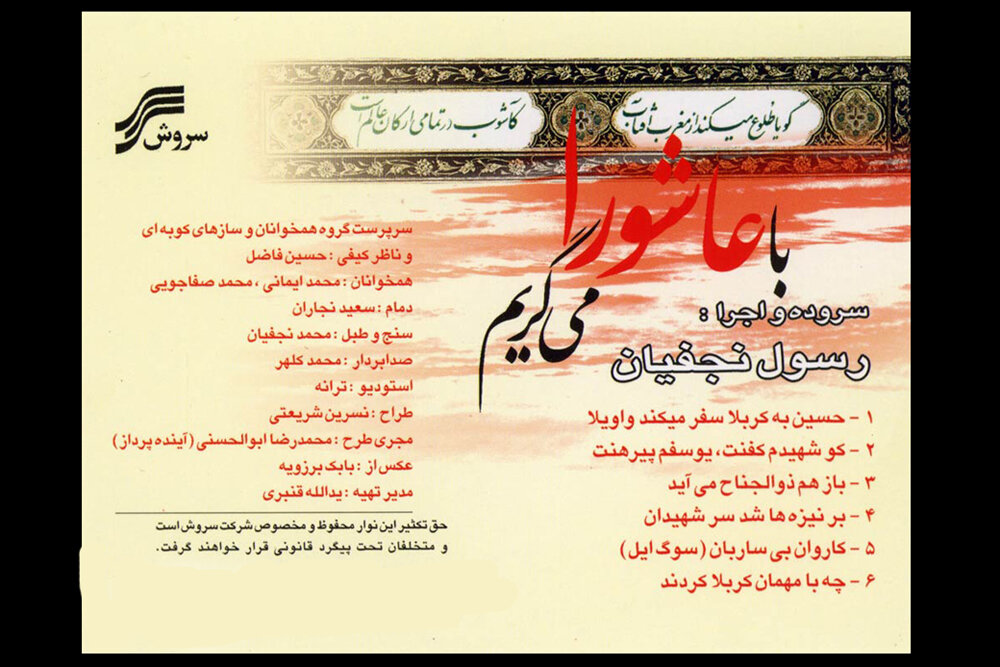 گویا طلوع میکند از مغرب آفتاب
کآشوب در تمامی ارکان عالم است
سروش
با عاشورا
می گریم
سروده و اجرا :
رسول نجفیان
۱ - حسین به کربلا سفر میکند واویلا
۲ - کو شهیدم کفنت، یوسفم پیرهنت
۳ - باز هم ذوالجناح می آید
۴ - بر نیزه ها شد سر شهیدان
۵ - کاروان بی ساربان (سوگ ایل)
۶ - چه با مهمان کربلا کردند
سرپرست گروه همخوانان و سازهای کوبه ای
و ناظر کیفی : حسین فاضل
همخوانان : محمد ایمانی ، محمد صفاجویی
دمام : سعید نجاران
سنج و طبل : محمد نجفیان
صدابردار : محمد کلهر
استودیو : ترانه
طراح : نسرین شریعتی
مجری طرح : محمدرضا ابوالحسنی (آینده پرداز)
عکس از : بابک برزویه
مدیر تهیه : یدالله قنبری
حق تکثیر این نوار محفوظ و مخصوص شرکت سروش است
و متخلفان تحت پیگرد قانونی قرار خواهند گرفت.